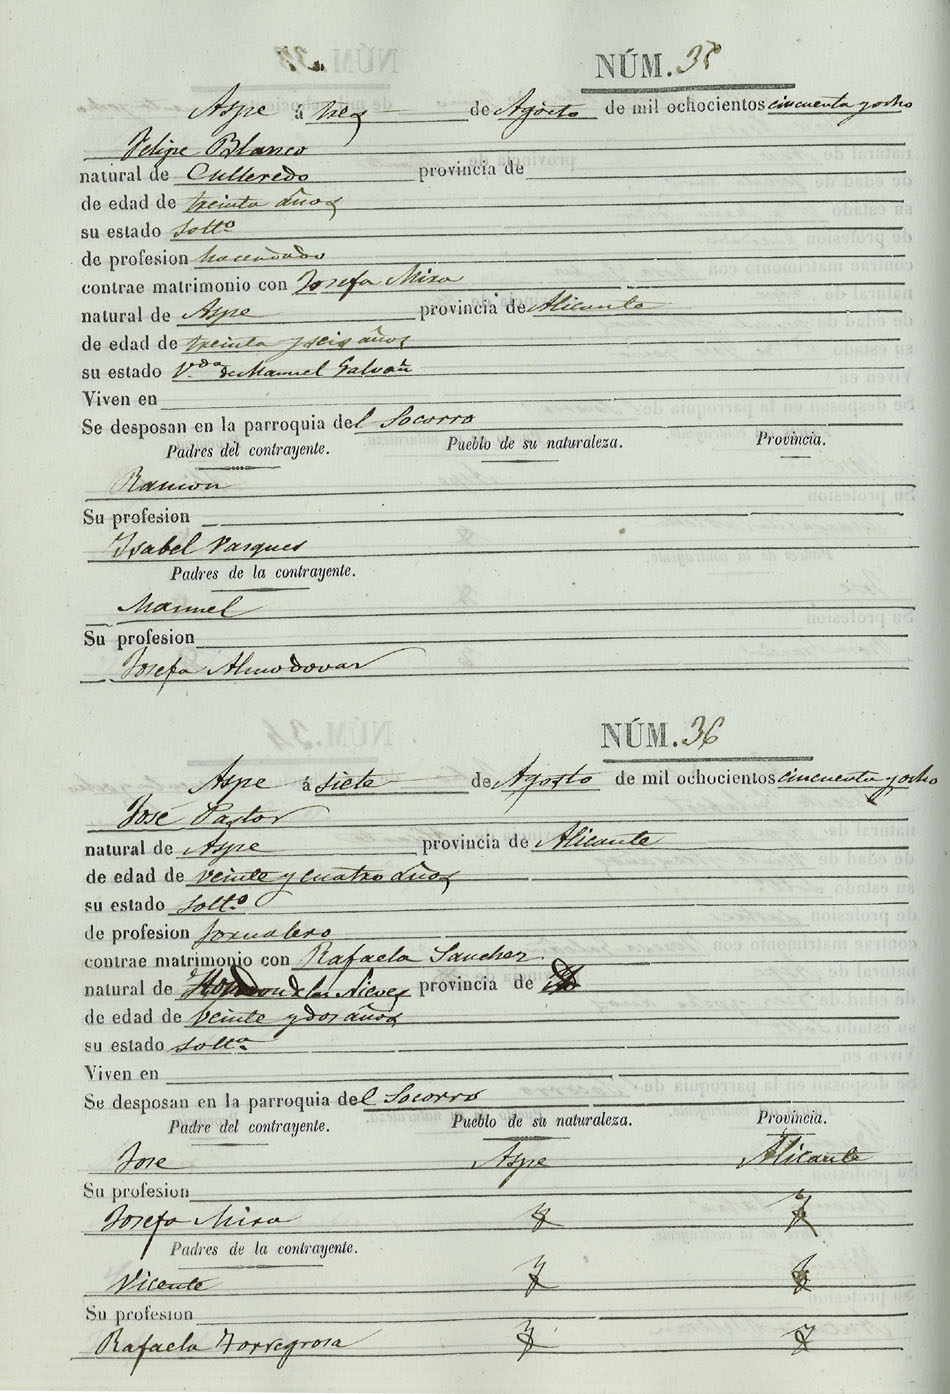 NÚM. 35
Aspe á tres de Agosto de mil ochocientos cincuenta y ocho
Felipe Blanco
natural de Culleredo provincia de
de edad de treinta años
su estado Soltº
de profesion hacendado
contrae matrimonio con Josefa Mira
natural de Aspe provincia de Alicante
de edad de treinta y seis años
su estado V.da de Manuel Galvañ
Viven en
Se desposan en la parroquia del Socorro
Padres del contrayente. Pueblo de su naturaleza. Provincia.
Ramon
Su profesion
Isabel Vasques
Padres de la contrayente.
Manuel
Su profesion
Josefa Almodovar
NÚM. 36
Aspe á siete de Agosto de mil ochocientos cincuenta y ocho
José Pastor
natural de Aspe provincia de Alicante
de edad de veinte y cuatro años
su estado Soltº
de profesion Jornalero
contrae matrimonio con Rafaela Sanchez
natural de Hondon de las Nieves provincia de id
de edad de veinte y dos años
su estado Soltª
Viven en
Se desposan en la parroquia del Socorro
Padre del contrayente. Pueblo de su naturaleza. Provincia.
Jose Aspe Alicante
Su profesion
Josefa Mira
Padres de la contrayente.
Vicente
Su profesion
Rafaela Torregrosa